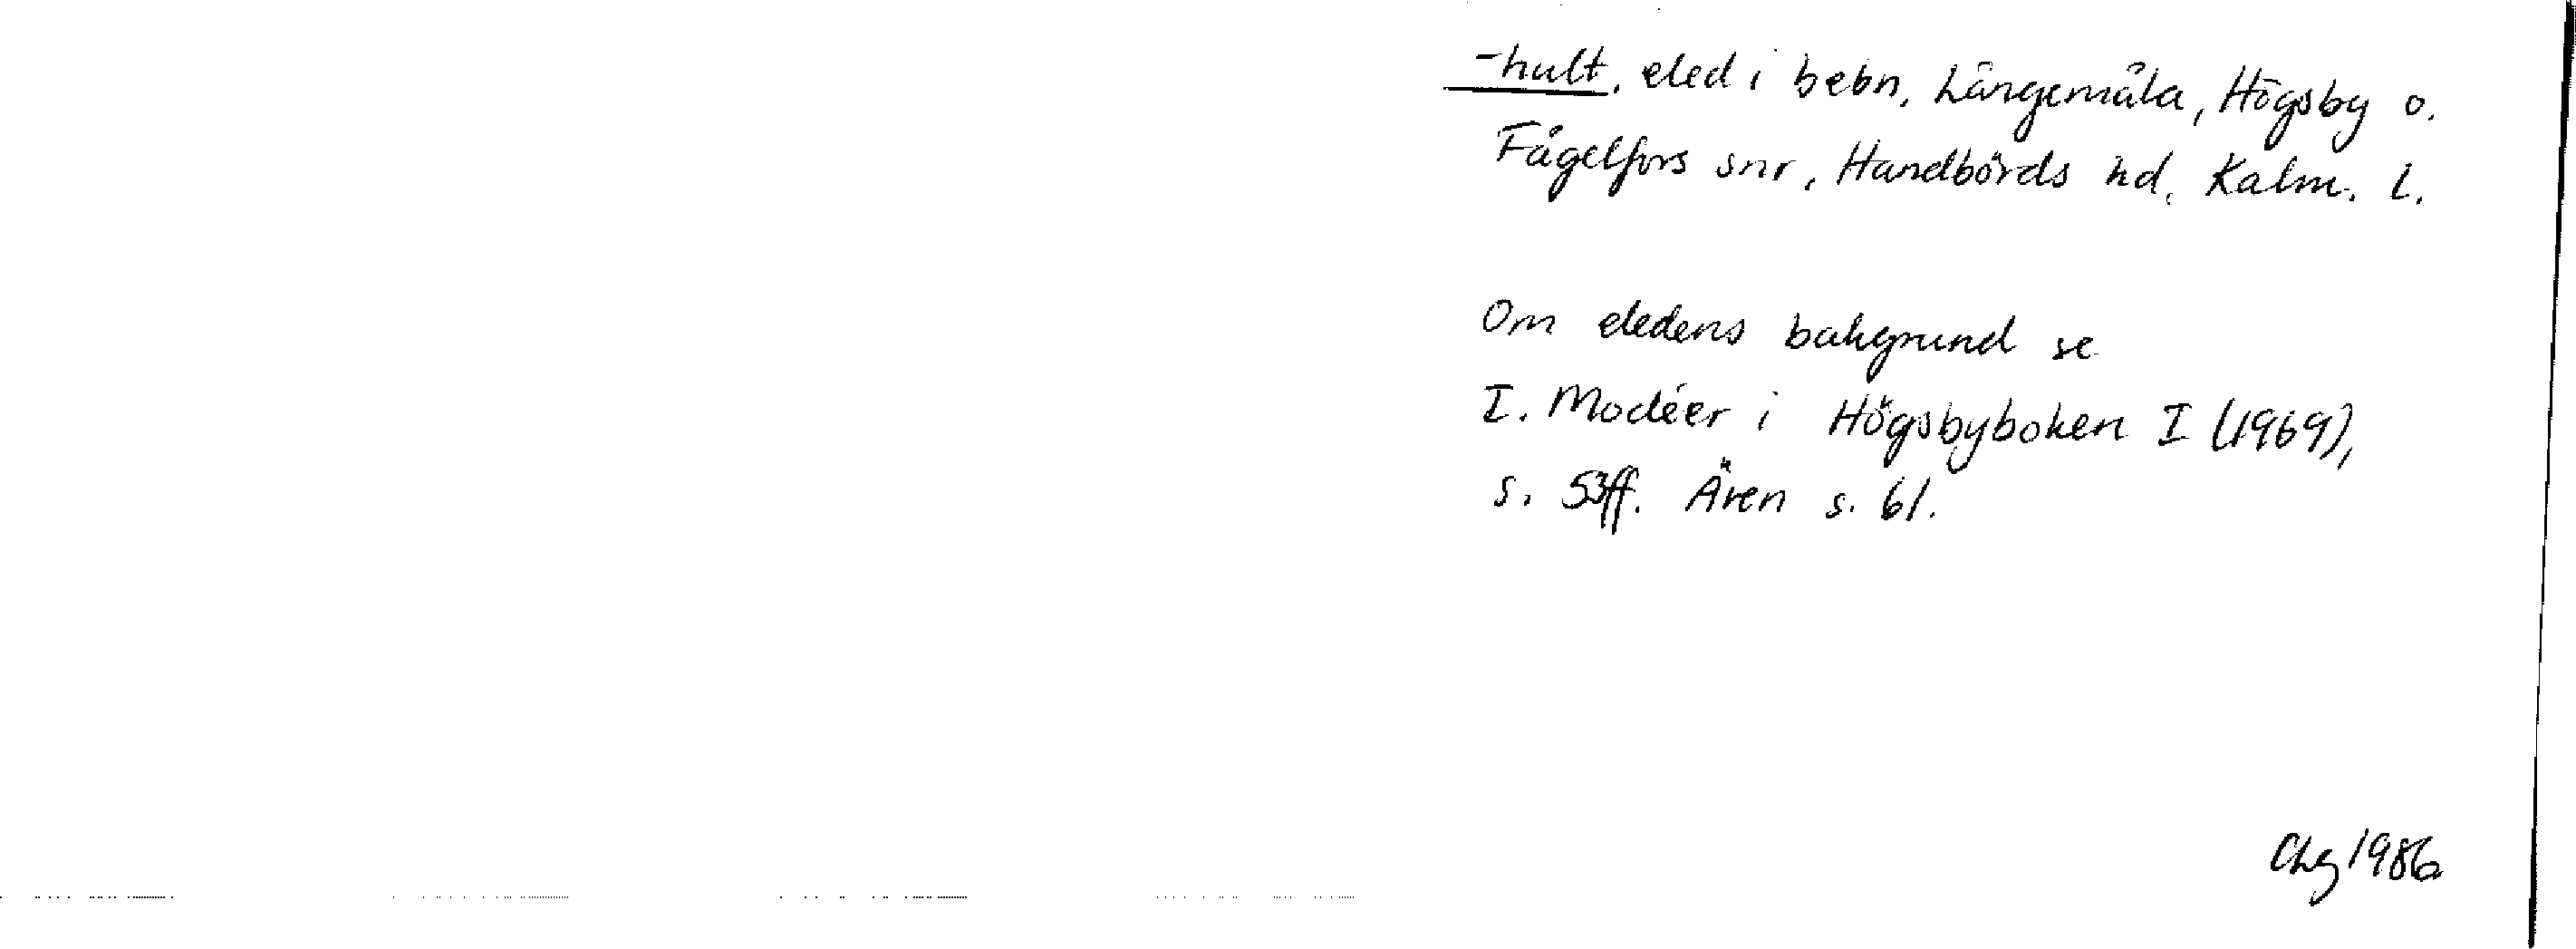 -hult, eled i bebn, Långemåla, Högsby o.
Fågelfors snr, Handbörds hd, Kalm. l.
Om eledens bakgrund se
I. Modéer i Högsbyboken I (1969),
s. 53ff. Även s. 61.
Chg 1986